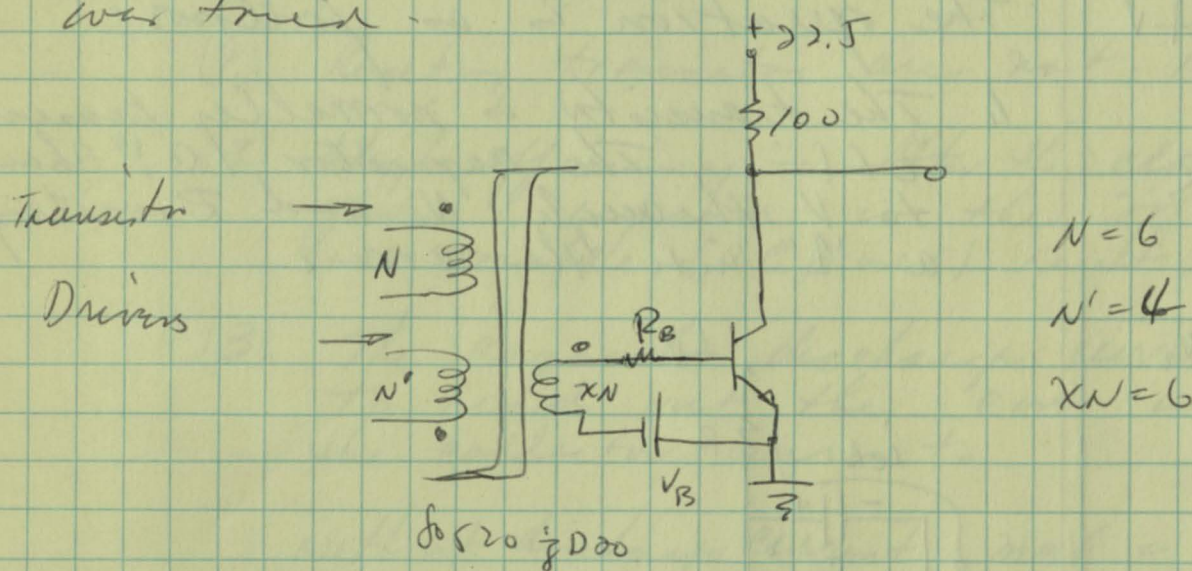 was tried.
+22.5
100
Transistor
Drivers
N
N'
R_B
XN
V_B
N = 6
N' = 4
XN = 6